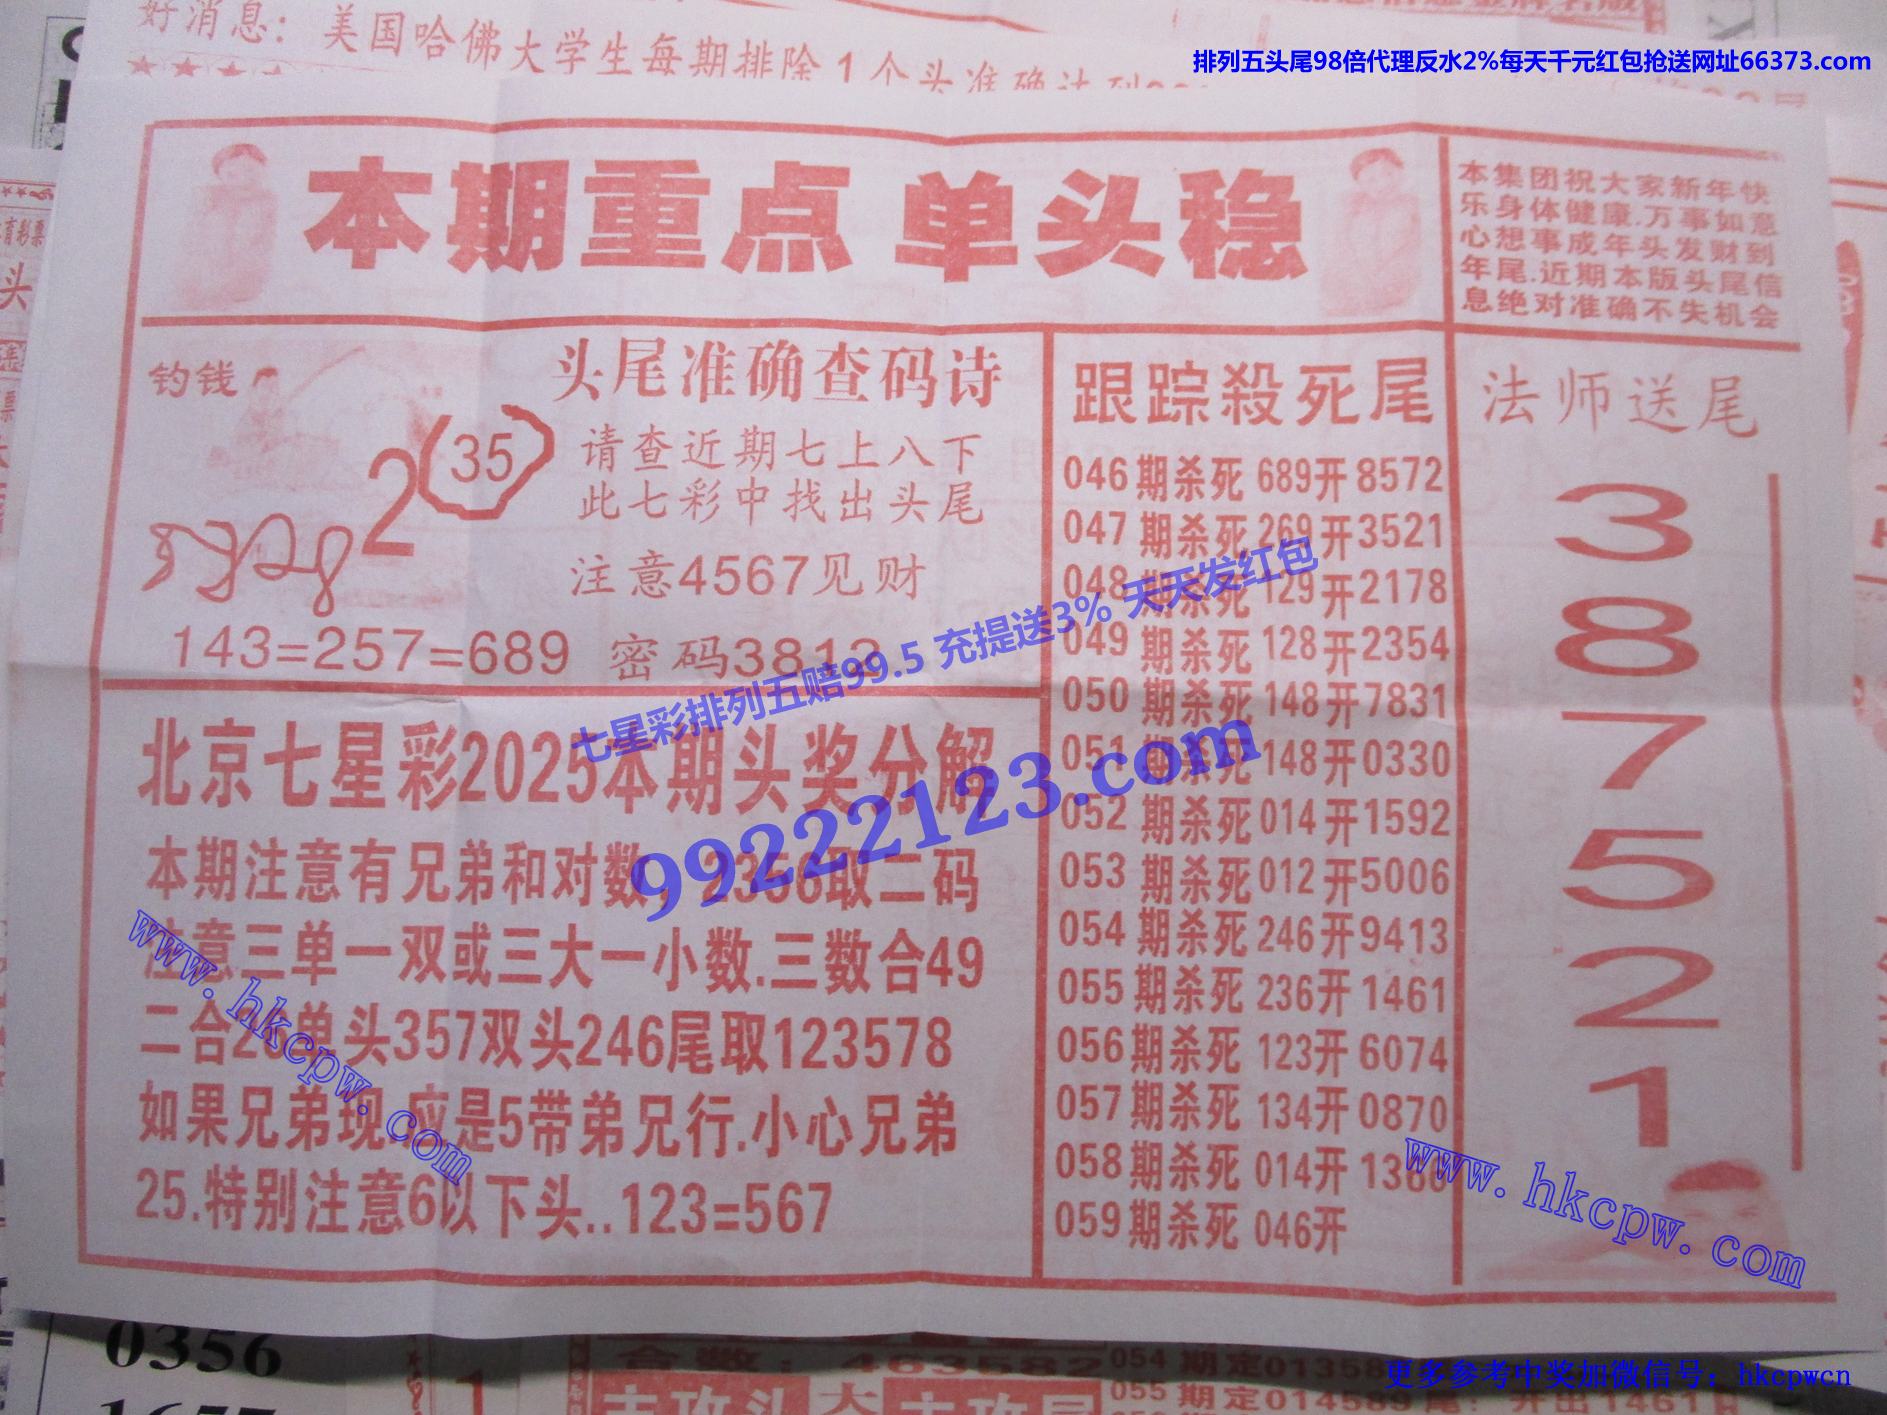 好消息：美国哈佛大学生每期排除1个头准确达到
排列五头尾98倍代理反水2%每天千元红包抢送网址66373.com
本期重点 单头稳
本集团祝大家新年快
乐身体健康.万事如意
心想事成年头发财到
年尾.近期本版头尾信
息绝对准确不失机会
钓钱
2
35
头尾准确查码诗
请查近期七上八下
此七彩中找出头尾
注意4567见财
143=257=689 密码3813
北京七星彩2025本期头奖分解
本期注意有兄弟和对数，2356取二码
注意三单一双或三大一小数.三数合49
二合26单头357双头246尾取123578
如果兄弟现.应是5带弟兄行.小心兄弟
25.特别注意6以下头..123=567
跟踪殺死尾
046期杀死 689开8572
047期杀死 269开3521
048期杀死 129开2178
049期杀死 128开2354
050期杀死 148开7831
051期杀死 148开0330
052期杀死 014开1592
053期杀死 012开5006
054期杀死 246开9413
055期杀死 236开1461
056期杀死 123开6074
057期杀死 134开0870
058期杀死 014开1360
059期杀死 046开
法师送尾
3
8
7
5
2
1
七星彩排列五赔99.5 充提送3% 天天发红包
99222123.com
www.hkcpw.com
www.hkcpw.com
0356
合数：463582
054期定01358
055期定014589尾：开出1461
更多参考中奖加微信号：hkcpwcn